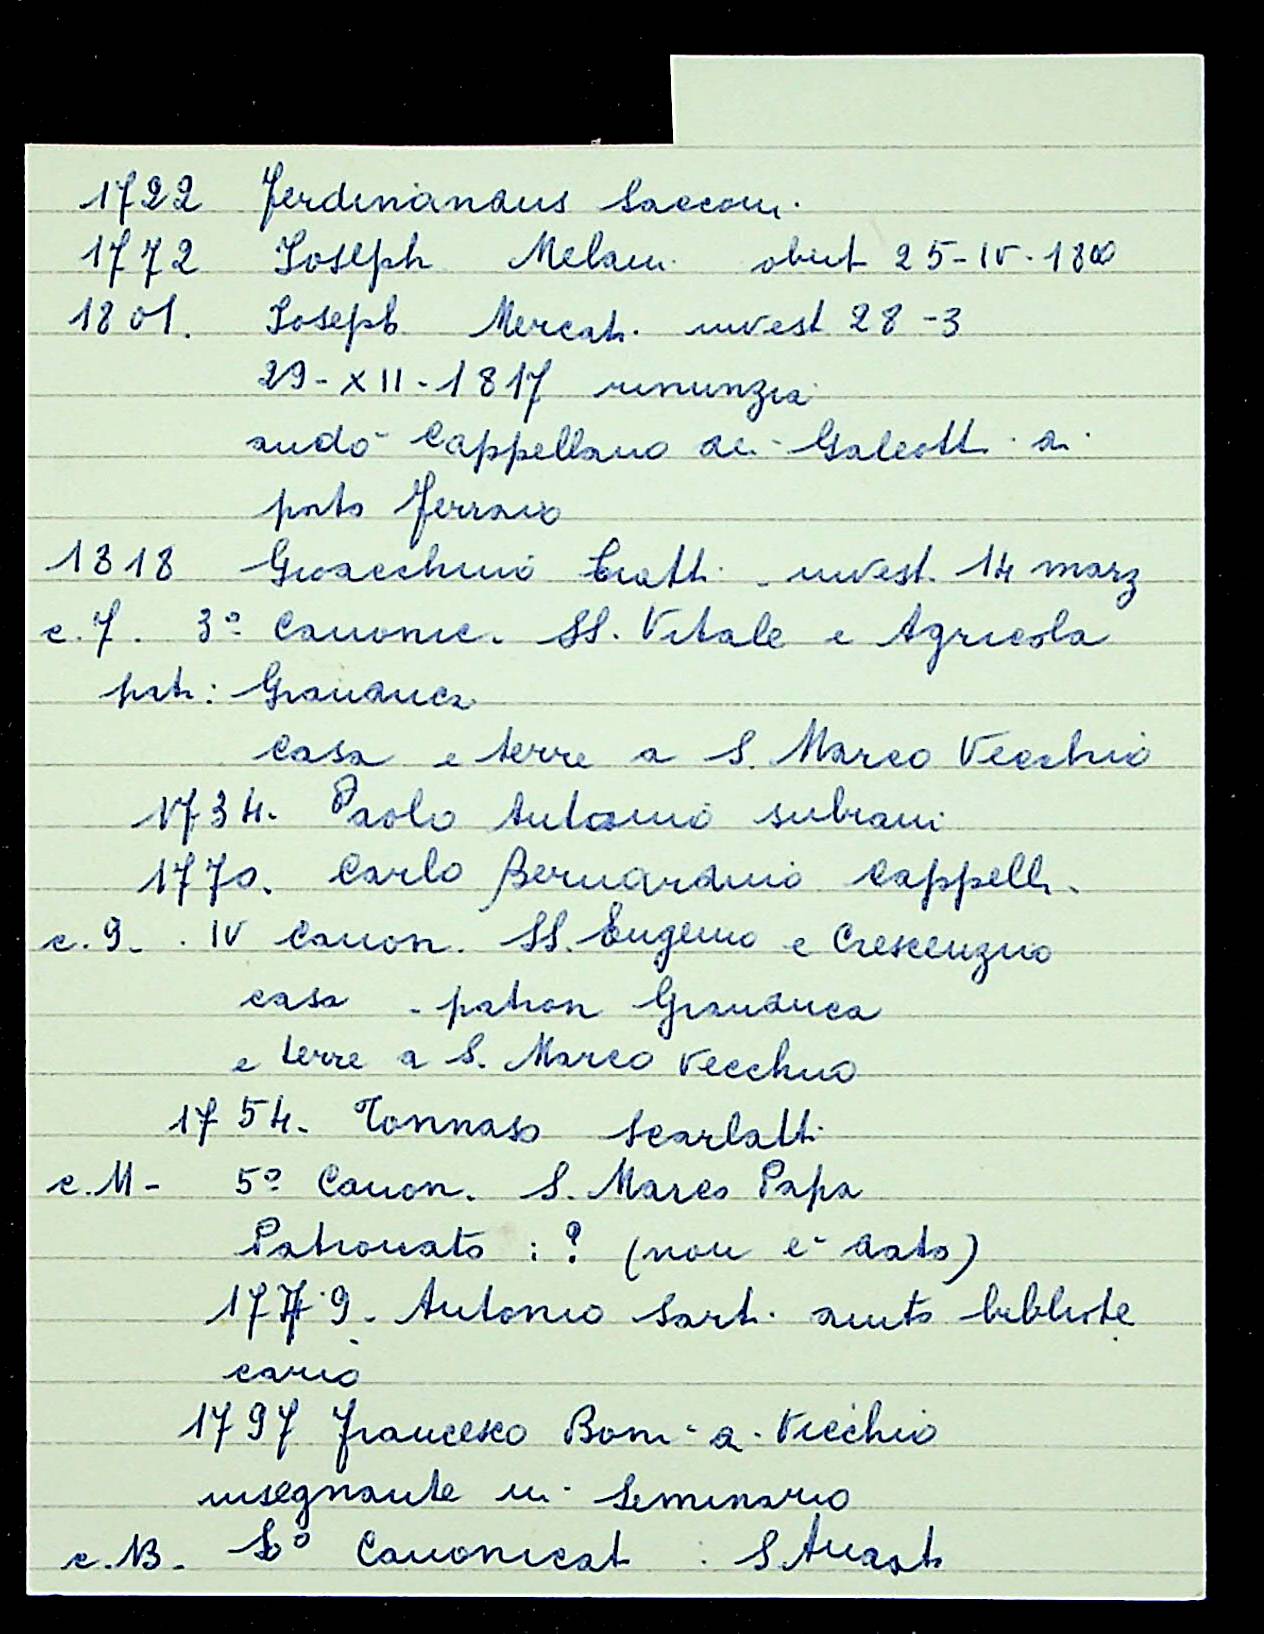 1722 Ferdinandus Sacconi.
1772 Joseph Melani obiit 25-IV-1800
1801. Joseph Mercati invest 28-3
29-XII-1817 rinunzia
andò Cappellano dei Galeotti a
porto Ferraio
1818 Gioacchino Cratti. invest. 14 marz
c.7. 3º Canonic. SS. Vitale e Agricola
patr: Granduca
Casa e terre a S. Marco Vecchio
1734. Paolo Antonio
1770. Carlo Bernardino Cappelli.
c.9. IV Canon. SS. Eugenio e Crescenzio
casa - patron Granduca
e terre a S. Marco Vecchio
1754. Tommaso Scarlatti
c.11- 5º Canon. S. Marco Papa
Patronato : ? (non è dato)
1779. Antonio Sarti aiuto bibliote
cario
1797 Francesco Boni a. Vecchio
insegnante in Seminario
c.13. Canonicat : S.